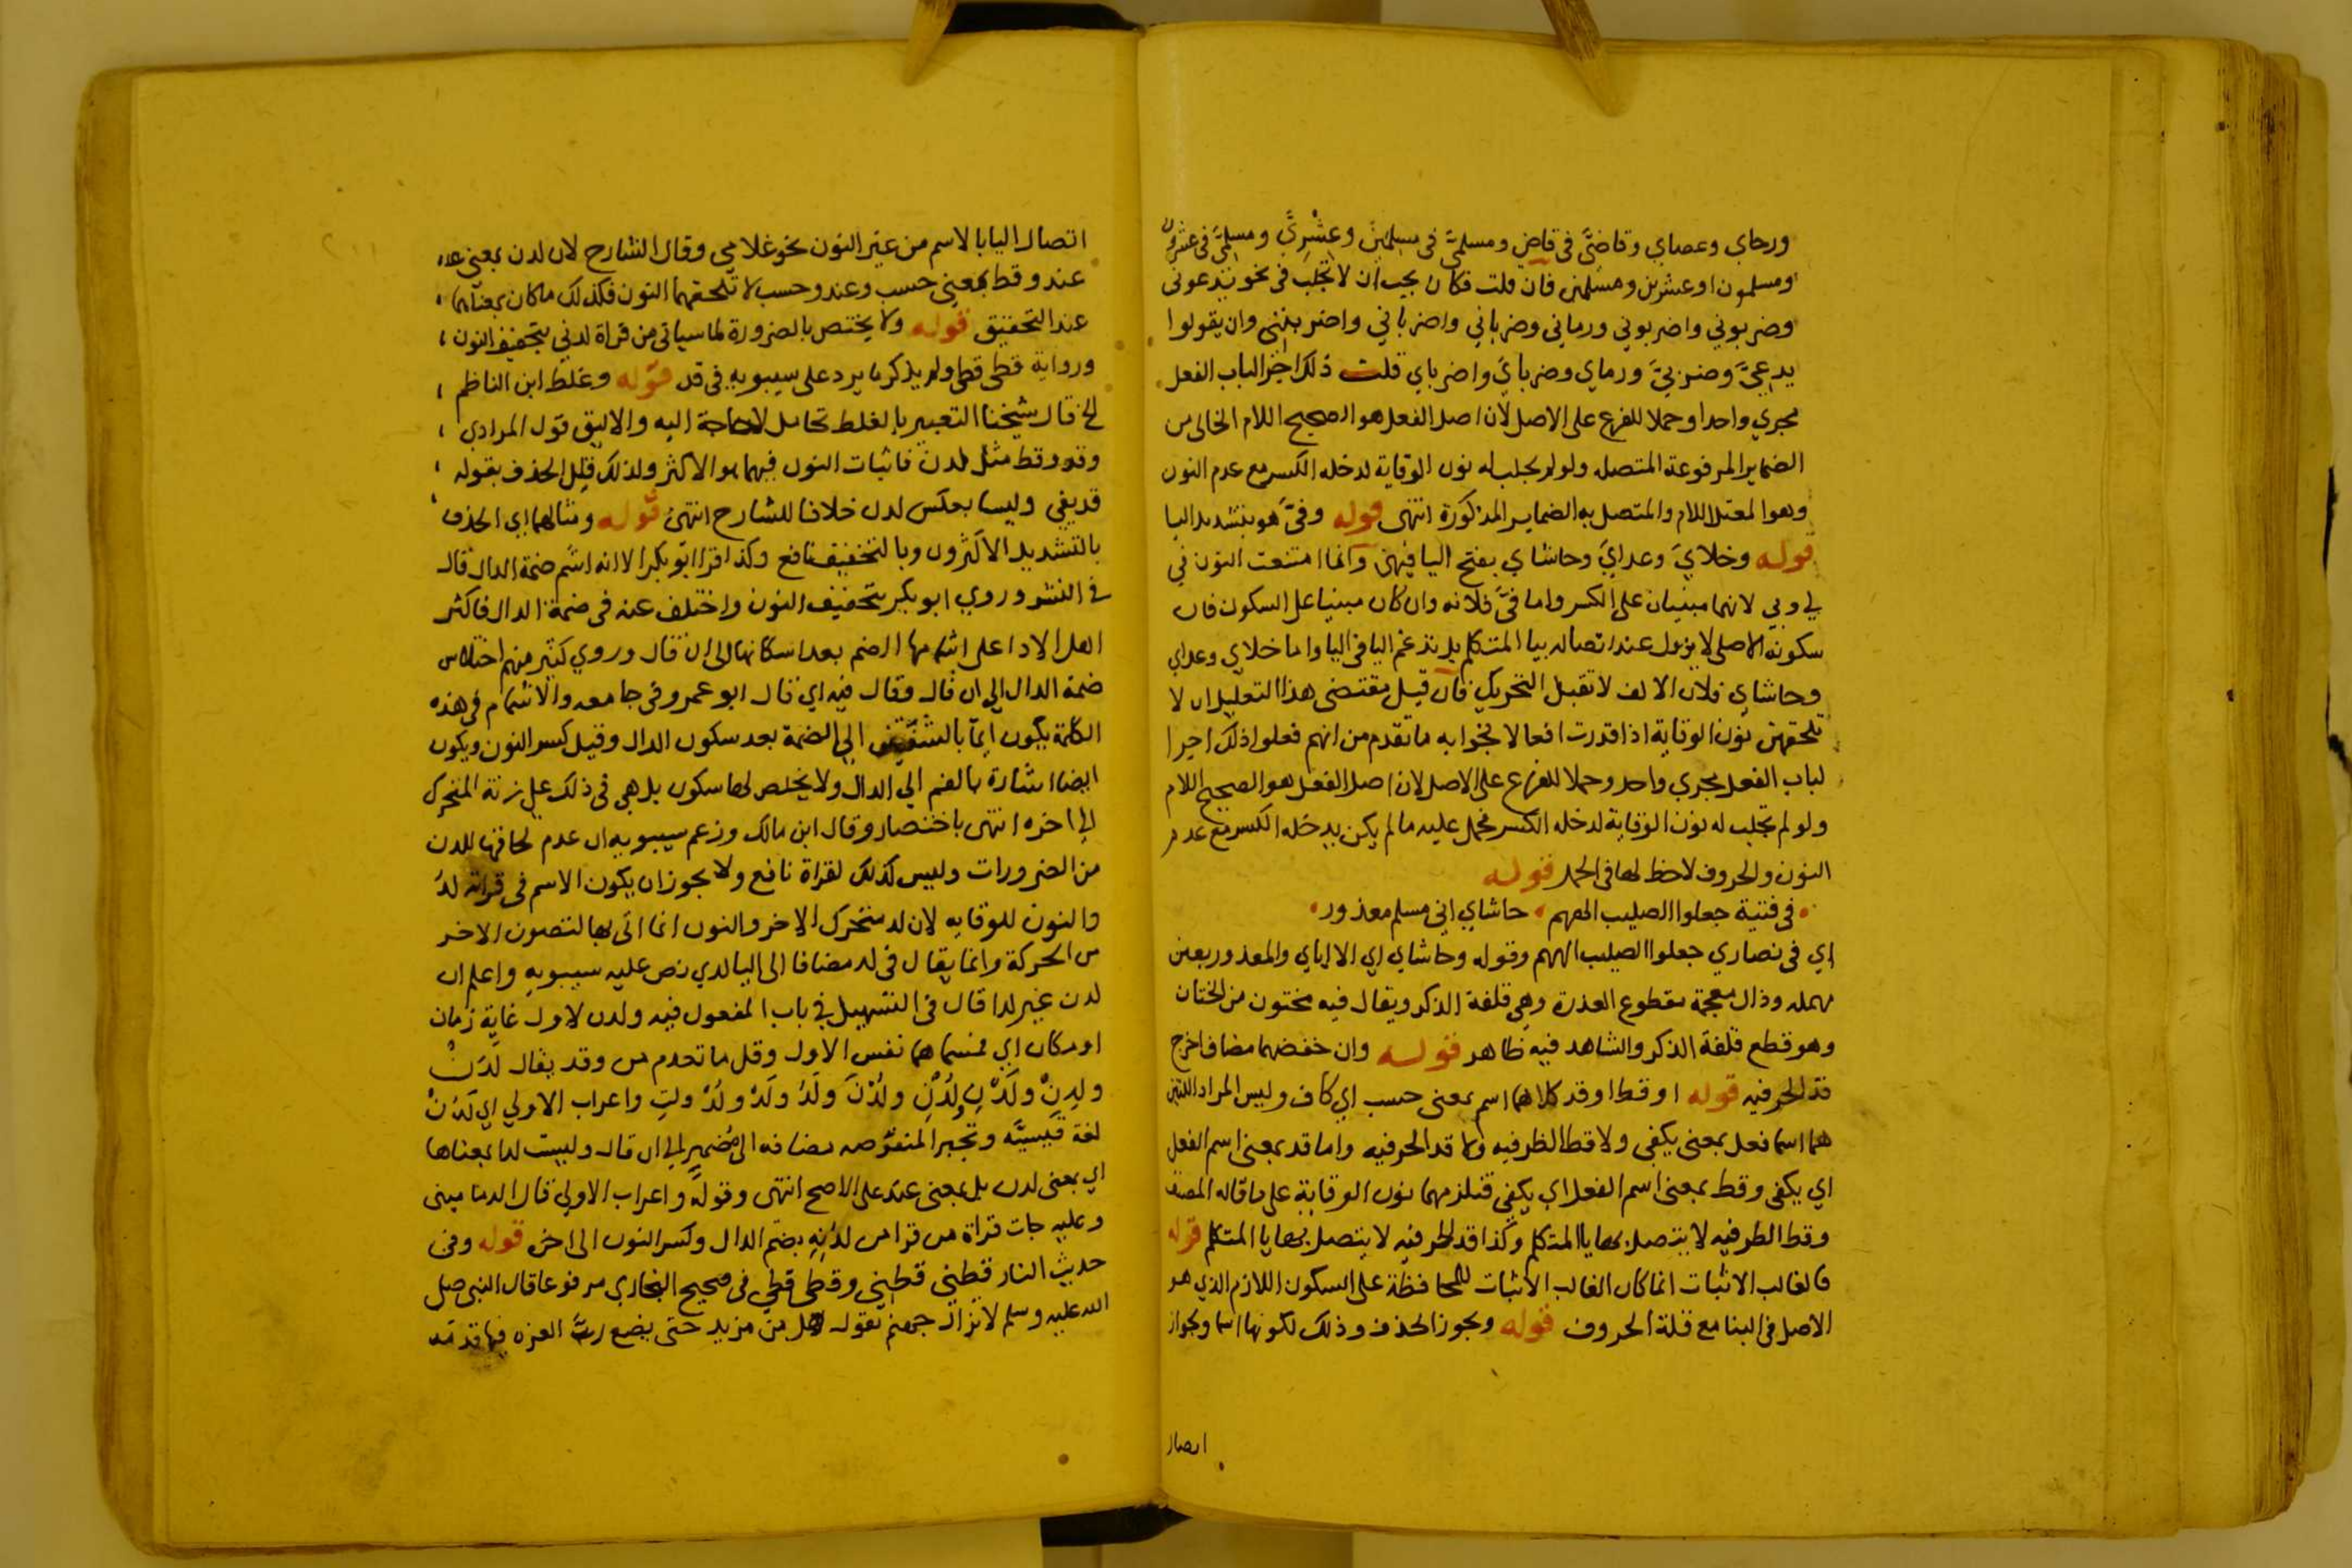 ورحاي وعصاي وقاضيَّ في قاض ومسلميَّ في مسلمين وعشريَّ ومسلميَّ في عشرون
ومسلمون او عشرين ومسلمين فان قلت فكان يجب ان لا تجلب في نحو يدعوني
وضربوني واضربوني ورماني وضرباني واضرباني واضربنني وان يقولوا
يدعيَّ وضربيَّ ورماي وضرباي واضرباي قلت ذلك اجرا لباب الفعل
مجري واحدا وحملا للفرع على الاصل لان اصل الفعل هو الصحيح اللام الخالي من
الضماير المرفوعة المتصله ولو لم يجلب له نون الوقاية لدخله الكسر مع عدم النون
وهو المعتل اللام والمتصل به الضماير المذكورة انتهى قوله وفيَّ هو بتشديد اليا
قوله وخلايَ وعدايَ وحاشاي بفتح اليا فيهن وانما امتنعت النون في
لي وبي لانهما مبنيان على الكسر واما فيَّ فلانه وان كان مبنيا على السكون فان
سكونه الاصلي لا يزول عند اتصاله بيا المتكلم بل تدغم اليا في اليا واما خلاي وعداي
وحاشاي فلان الالف لا تقبل التحريك فان قيل مقتضى هذا التعليل ان لا
تلحقهن نون الوقاية اذا قدرت افعالا فجوابه ما تقدم من انهم فعلوا ذلك اجرا
لباب الفعل مجري واحد وحملا للفرع على الاصل لان اصل الفعل هو الصحيح اللام
ولو لم تجلب له نون الوقاية لدخله الكسر فحمل عليه ما لم يكن يدخله الكسر مع عدم
النون والحروف لاحظ لها في الحمل قوله
في فتية جعلوا الصليب الههم حاشاي اني مسلم معذور
اي في نصاري جعلوا الصليب الههم وقوله وحاشاي اي الا اياي والمعذور بعين
مهمله وذال معجمة مقطوع العذرة وهي قلفة الذكر ويقال فيه مختون من الختان
وهو قطع قلفة الذكر والشاهد فيه ظاهر قوله وان خفضهما مضاف اخرج
قد الحرفيه قوله او قط او قد كلاهما اسم بمعنى حسب اي كاف وليس المراد اللتين
هما اسما فعل بمعنى يكفي ولا قط الظرفيه ولا قد الحرفيه واما قد بمعنى اسم الفعل
اي يكفي وقط بمعنى اسم الفعل اي يكفي فتلزمهما نون الوقاية على ما قاله المصنف
وقط الظرفيه لا يتصل بها يا المتكلم وكذا قد الحرفيه لا يتصل بها يا المتكلم قوله
فالغالب الاثبات انما كان الغالب الاثبات للمحافظة على السكون اللازم الذي هو
الاصل في البنا مع قلة الحروف قوله ويجوز الحذف وذلك لكونها اسما وبجواز
اتصال
اتصال اليا بالاسم من غير النون نحو غلامي وقال الشارح لان لدن بمعنى
عند وقط بمعنى حسب وعند وحسب لا تلحقهما النون فكذلك ما كان بمعناهما
عند التحقيق قوله ولا يختص بالضرورة لما سياتي من قراة لدني بتخفيف النون
ورواية قطي قطي ولم يذكر ما يرد على سيبويه في قد قوله وغلط ابن الناظم
الخ قال شيخنا التعبير بالغلط تحامل لا حاجة اليه والاليق قول المرادي
وقد وقط مثل لدن فاثبات النون فيهما هو الاكثر ولذلك قلل الحذف بقوله
قد يفي وليسا بعكس لدن خلافا للشارح انتهى قوله ومثالهما اي الحذف
بالتشديد الاكثرون وبالتخفيف نافع وكذا قرا ابو بكر الا انه اشم ضمة الدال قال
في النشر وروي ابو بكر بتخفيف النون واختلف عنه في ضمة الدال فاكثر
اهل الادا على اشمامها الضم بعد اسكانها الى ان قال وروي كثير منهم اختلاس
ضمة الدال الى ان قال وقال فيه اي قال ابو عمرو في جامعه والاشمام في هذه
الكلمة يكون ايمآ بالشفتين الى الضمة بعد سكون الدال وقيل كسر النون ويكون
ايضا اشارة بالضم الي الدال ولا يخلص لها سكون بل هي في ذلك على زنة المتحرك
الى اخره انتهى باختصار وقال ابن مالك وزعم سيبويه ان عدم لحاقها للدن
من الضرورات وليس كذلك لقراة نافع ولا يجوز ان يكون الاسم في قراته لدُ
والنون للوقايه لان لد متحرك الاخر والنون انما اتى بها لتصون الاخر
من الحركة وانما يقال في لد مضافا الى اليا لدي نص عليه سيبويه واعلم ان
لدن غير لدا قال في التسهيل في باب المفعول فيه ولدن لاول غاية زمان
او مكان اي فمسماهما نفس الاول وقل ما تعدم من وقد يقال لَدَنْ
ولَدِنْ ولَدْنِ ولُدْنِ ولُدْنَ ولَدُ ولَدْ ولُدْ ولتِ واعراب الاولي اي لَدُنْ
لغة قيسيّه وتجبر المنقوصه مضافه الى مُضمر الى ان قال وليست لدا بمعناها
اي بمعنى لدن بل بمعنى عند على الاصح انتهى وقوله واعراب الاولي قال الدماميني
وعليه جات قراة من قرا من لدُنِهِ بضم الدال وكسر النون الى اخره قوله وفي
حديث النار قطني قطني وقطي قطي في صحيح البخاري مرفوعا قال النبي صلى
الله عليه وسلم لا تزال جهنم تقول هل من مزيد حتى يضع ربُّ العزه فيها قدمه